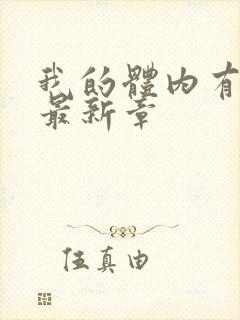 我的體内有
最新章
伍真由